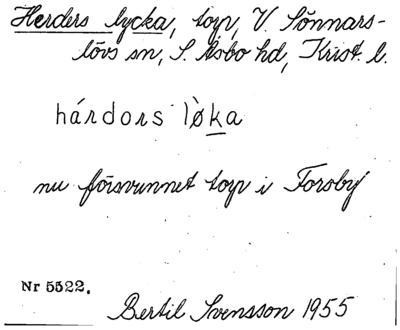 Herders lycka, torp, V. Sönnars-
lövs sn, S. Åsbo hd, Krist. l.
hárdors lø̀ka
nu försvunnet torp i Forsby
Nr 5522.
Bertil Svensson 1955